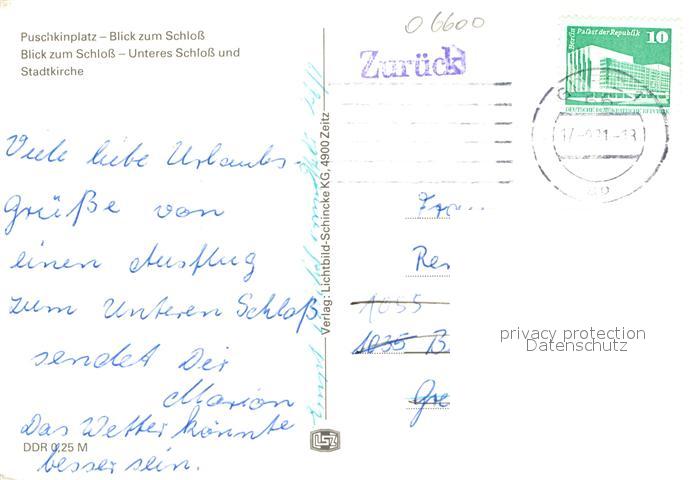 Puschkinplatz – Blick zum Schloß
Blick zum Schloß – Unteres Schloß und
Stadtkirche
Viele liebe Urlaubs-
grüße von
einen Ausflug
zum Unteren Schloß
sendet Dir
Marion
Das Wetter könnte
besser sein.
DDR 0,25 M
Verlag: Lichtbild-Schincke KG, 4900 Zeitz
LSZ
O 6600
Zurück
Berlin Palast der Republik
10
DEUTSCHE DEMOKRATISCHE REPUBLIK
1055
1035 B
privacy protection
Datenschutz